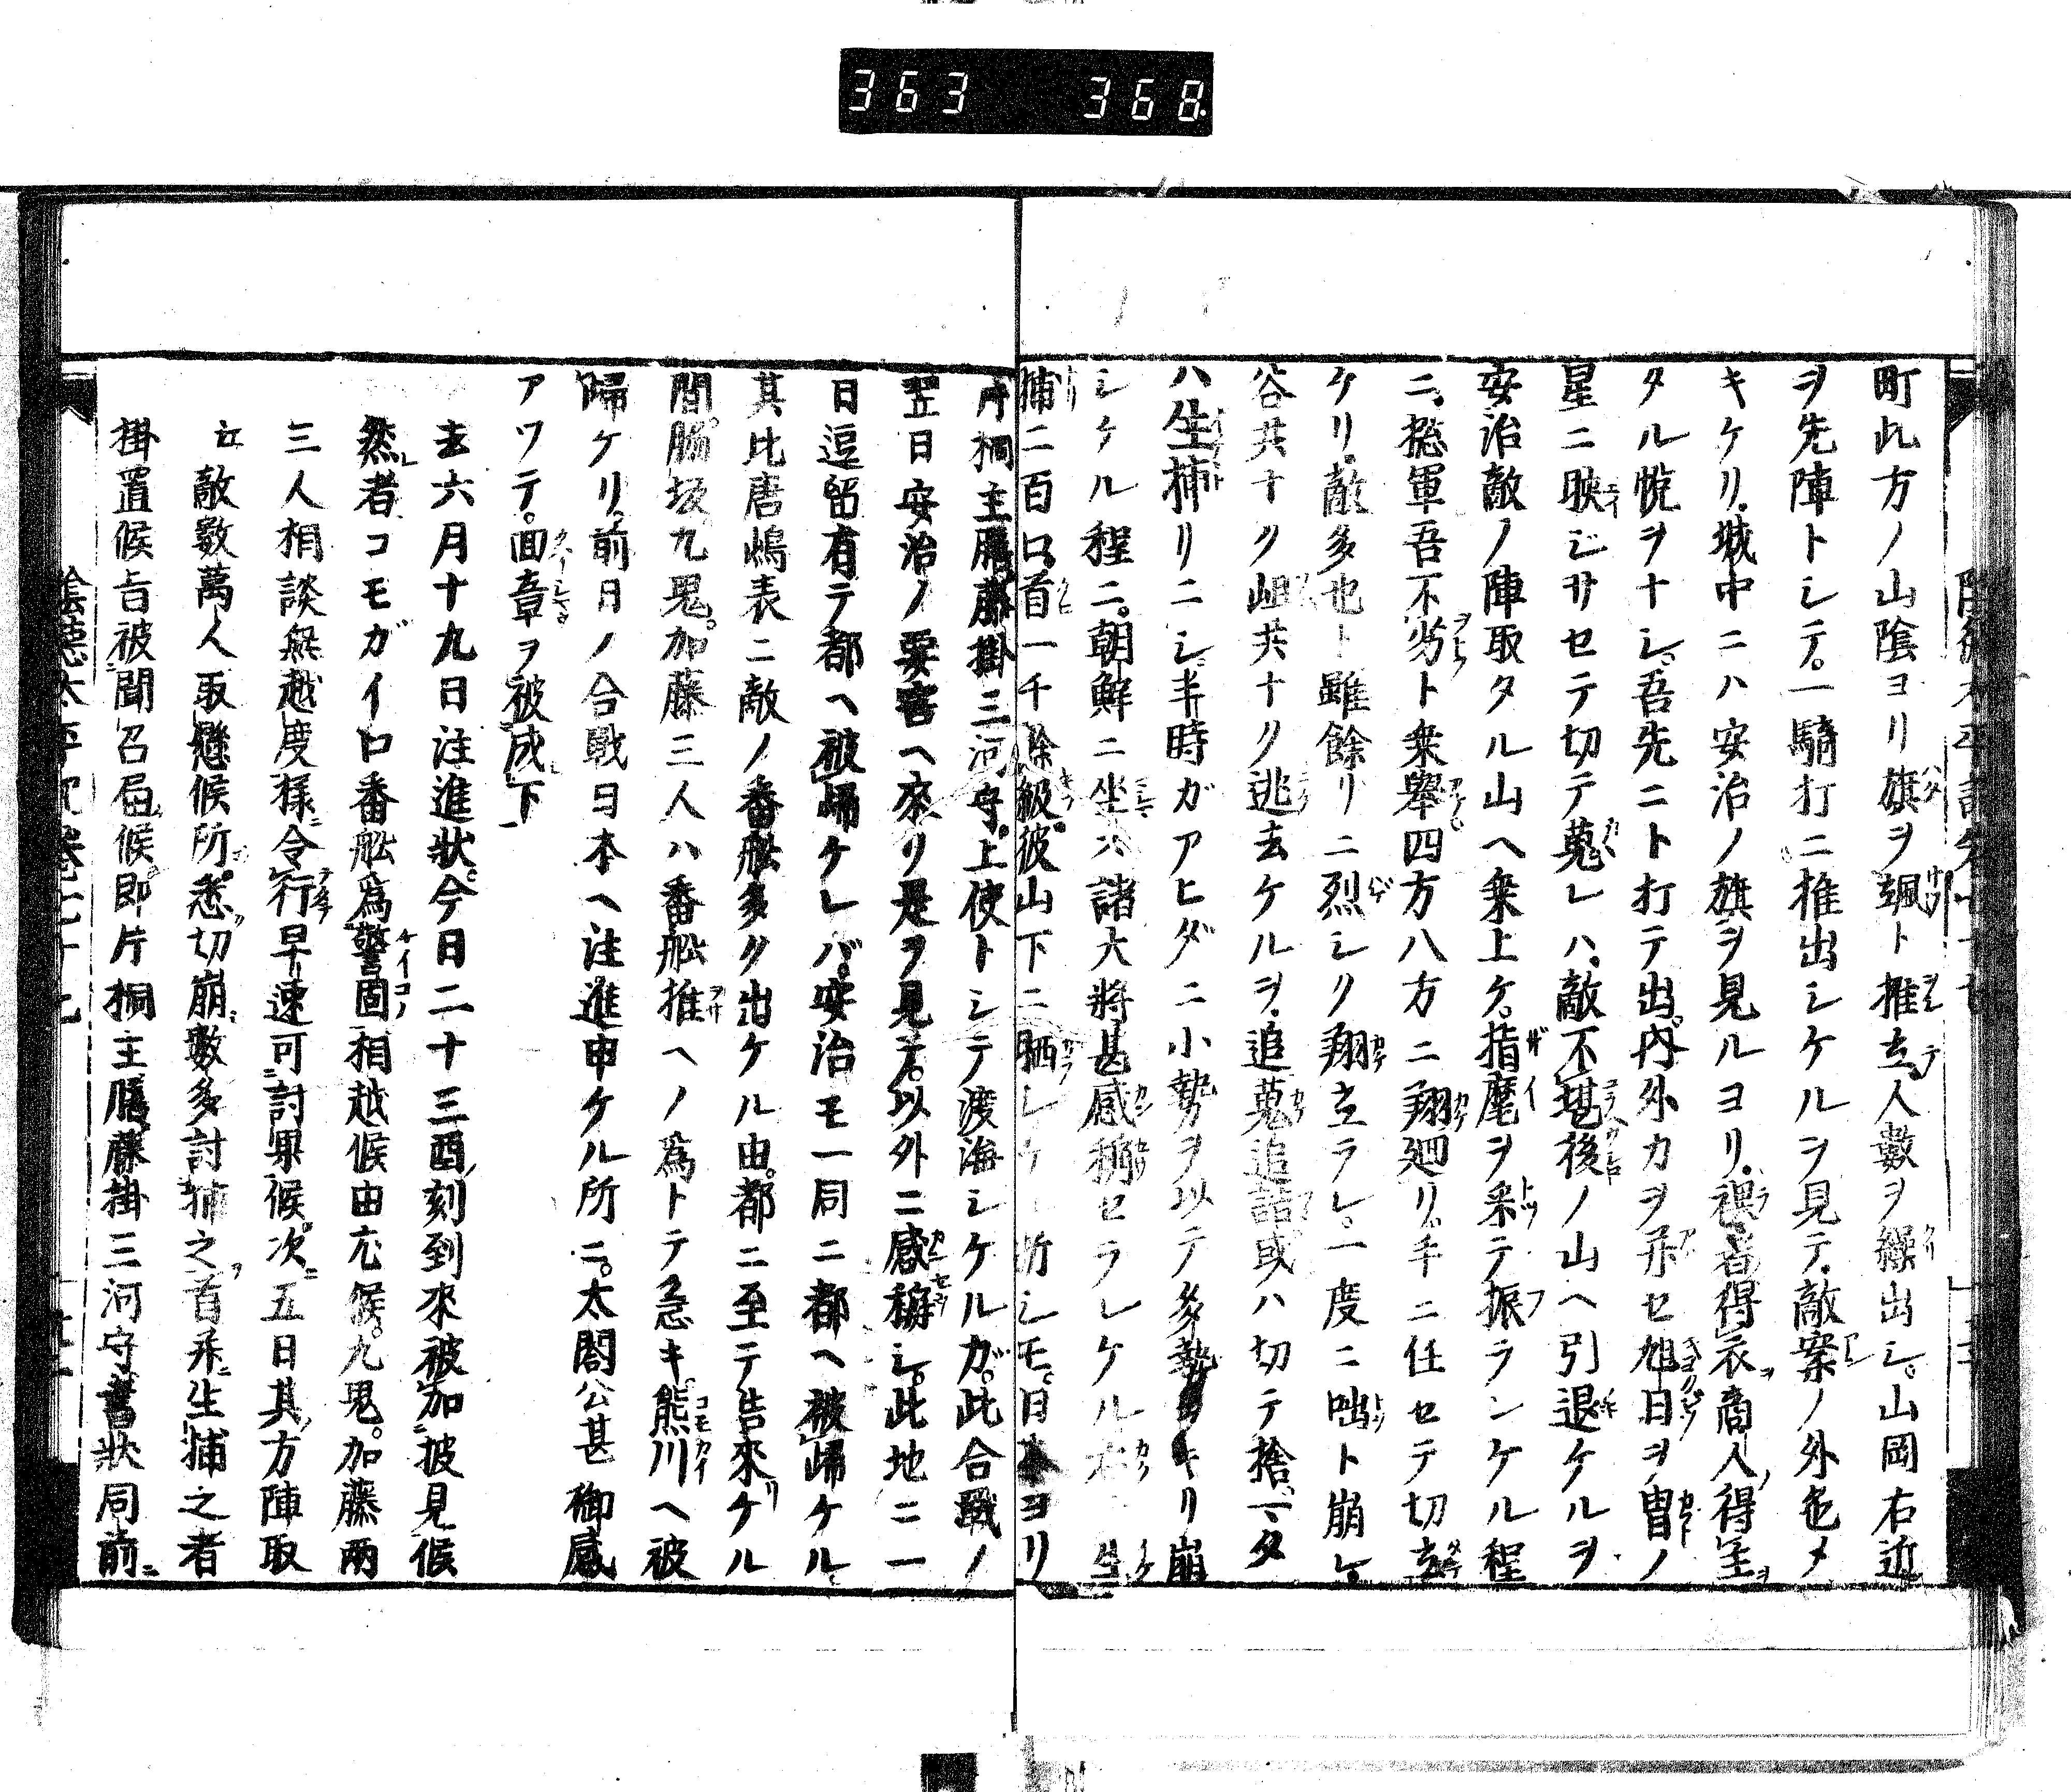 363 368
町此方ノ山陰ヨリ旗ヲ颯ト推立人數ヲ繰出シ。山岡右近
ヲ先陣トシテ。一騎打ニ推出シケルヲ見テ。敵案ノ外也メ
キケリ。城中ニハ安治ノ旗ヲ見ルヨリ。裸者得衣商人得主
タル悦ヲナシ。吾先ニト打テ出。内外力ヲ并セ旭日ヲ冑ノ
星ニ映ジサセテ切テ蒐レハ。敵不堪後ノ山ヘ引退ケルヲ
安治敵ノ陣取タル山ヘ乗上ケ。指麾ヲ采テ振ランケル程
ニ。惣軍吾不劣ト衆擧四方八方ニ翔廻リ。手ニ任セテ切立
ケリ。敵多也ト雖餘リニ烈シク翔立ラレ。一度ニ咄ト崩レ。
谷共ナク岨共ナク逃去ケルヲ。追蒐追詰或ハ切テ捨。マタ
ハ生捕リニシ。半時ガアヒダニ小勢ヲ以テ多勢ヲキリ崩
シケル程ニ。朝鮮ニ坐ス諸大將甚感稱セラレケル
捕二百口。首一千餘級。彼山下ニ晒シケ 折シモ。日本ヨリ
片桐主膳藤掛三河守。上使トシテ渡海シケルガ。此合戰ノ
翌日安治ノ要害ヘ來リ是ヲ見テ。以外ニ感稱シ。此地ニ一
日逗留有テ都ヘ被歸ケレバ。安治モ一同ニ都ヘ被歸ケル
其比唐嶋表ニ敵ノ番舩多ク出ケル由。都ニ至テ告來ゲル
間。脇坂九鬼。加藤三人ハ番舩推ヘノ爲トテ急キ。熊川ヘ被
歸ケリ。前日ノ合戰日本ヘ注進申ケル所ニ。太閤公甚御感
アツテ。面章ヲ被成下
去六月十九日注進狀。今日二十三酉刻到來被加披見候
然者コモガイ口番舩爲警固相越候由尤候。九鬼。加藤兩
三人相談無越度樣令行早速可討果候。次五日其方陣取
ヱ敵數萬人取懸候所。悉切崩數多討捕之首并生捕之者
掛置候旨被聞召届候。即片桐主膳藤掛三河守書狀同前
陰德太平記卷七十七